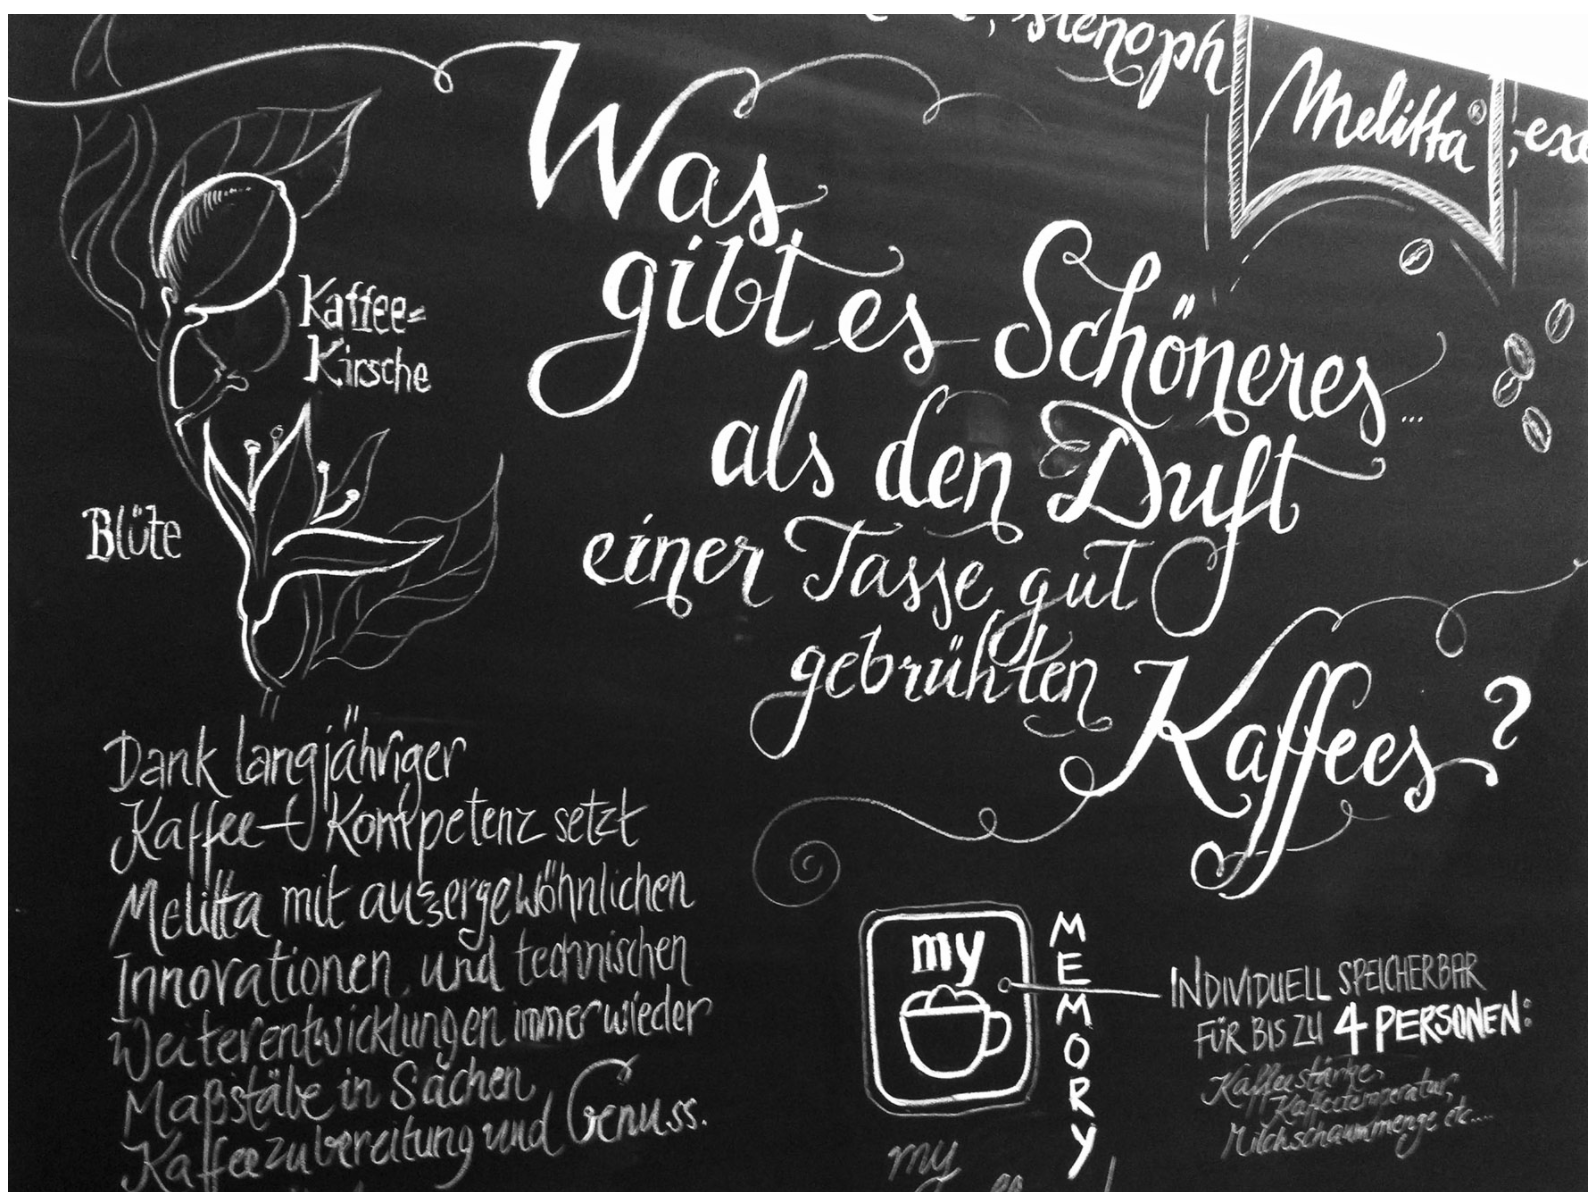 Melitta®
Was
gibt es Schöneres...
als den Duft
einer Tasse gut
gebrühten
Kaffees?
Kaffee-
Kirsche
Blüte
Dank langjähriger
Kaffee-Kompetenz setzt
Melitta mit außergewöhnlichen
Innovationen und technischen
Weiterentwicklungen immer wieder
Maßstäbe in Sachen
Kaffeezubereitung und Genuss.
my
MEMORY
INDIVIDUELL SPEICHERBAR
FÜR BIS ZU 4 PERSONEN:
Kaffeestärke,
Kaffeetemperatur,
Milchschaummenge etc....
my